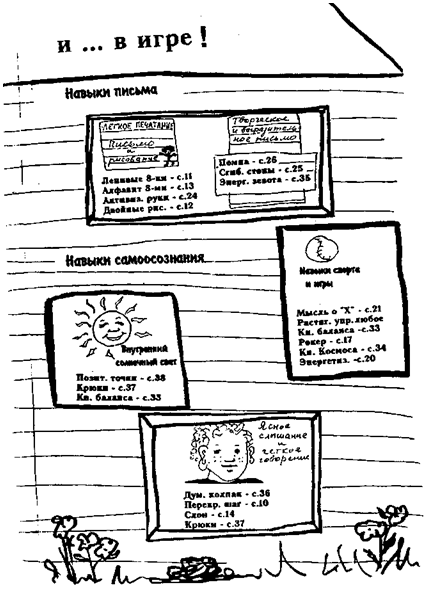 и ... в игре!
Навыки письма
ЛЕГКОЕ ПЕЧАТАНИЕ
Письмо
и
рисование
Ленивые 8-ки - с.11
Алфавит 8-ми - с.13
Активиз. руки - с.24
Двойные рис. - с.12
Творческое
и выразитель
ное письмо
Помпа - с.26
Сгиб. стопы - с.25
Энерг. зевота - с.35
Навыки самоосознания
Внутренний
солнечный свет
Позит. точки - с.38
Крюки - с.37
Кн. баланса - с.33
Навыки спорта
и игры
Мысль о "Х" - с.21
Растяг. упр.любое
Кн. баланса -с.33
Рокер - с.17
Кн. Космоса - с.34
Энергетиз. -с.20
Ясное
слышание
и
четкое
говорение
Дум. колпак - с.36
Перекр. шаг - с.10
Слон - с.14
Крюки - с.37